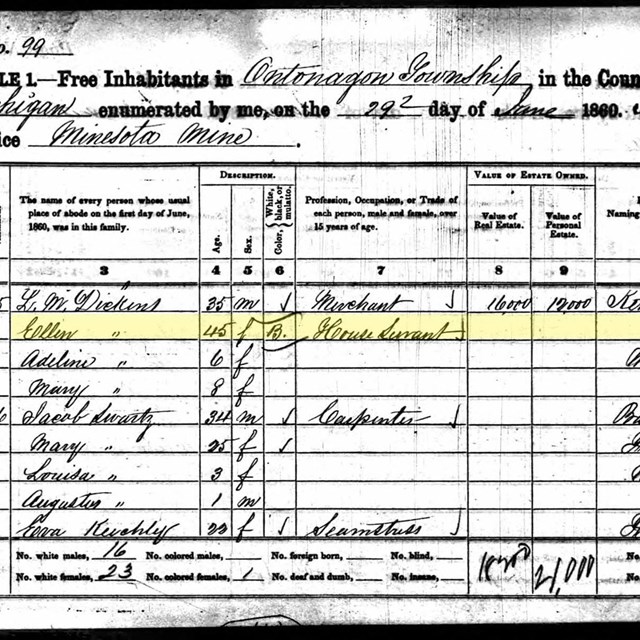 o. 99
LE 1.—Free Inhabitants in Ontonagon Township in the Coun
higan enumerated by me, on the 29 day of June 1860.
ice Minesota Mine.
The name of every person whose usual place of abode on the first day of June, 1860, was in this family.
DESCRIPTION.
Age.
Sex.
Color, { White, black, or mulatto.
Profession, Occupation, or Trade of each person, male and female, over 15 years of age.
VALUE OF ESTATE OWNED.
Value of Real Estate.
Value of Personal Estate.
Naming
3 4 5 6 7 8 9
L. W. Dickens 35 m Merchant 16000 12000
Ellen " 45 f B. House Servant
Adeline " 6 f
Mary " 8 f
Jacob Swartz 34 m Carpenter
Mary " 25 f
Louisa " 3 f
Augustus " 1 m
Eva 23 f Seamstress
No. white males, 16 No. colored males, No. foreign born, No. blind,
No. white females, 23 No. colored females, 1 No. deaf and dumb, No. insane, 21,000